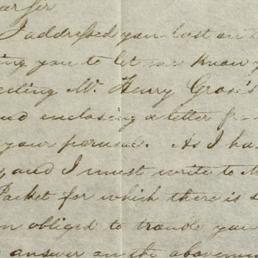 ar Sir
I addressed you last on
ing you to let me know y
ecting Mr. Henry Grose's
nd enclosing a letter fr
your perusal. As I ha
and I must write to M
Packet for which there is s
m obliged to trouble you
answer on the above